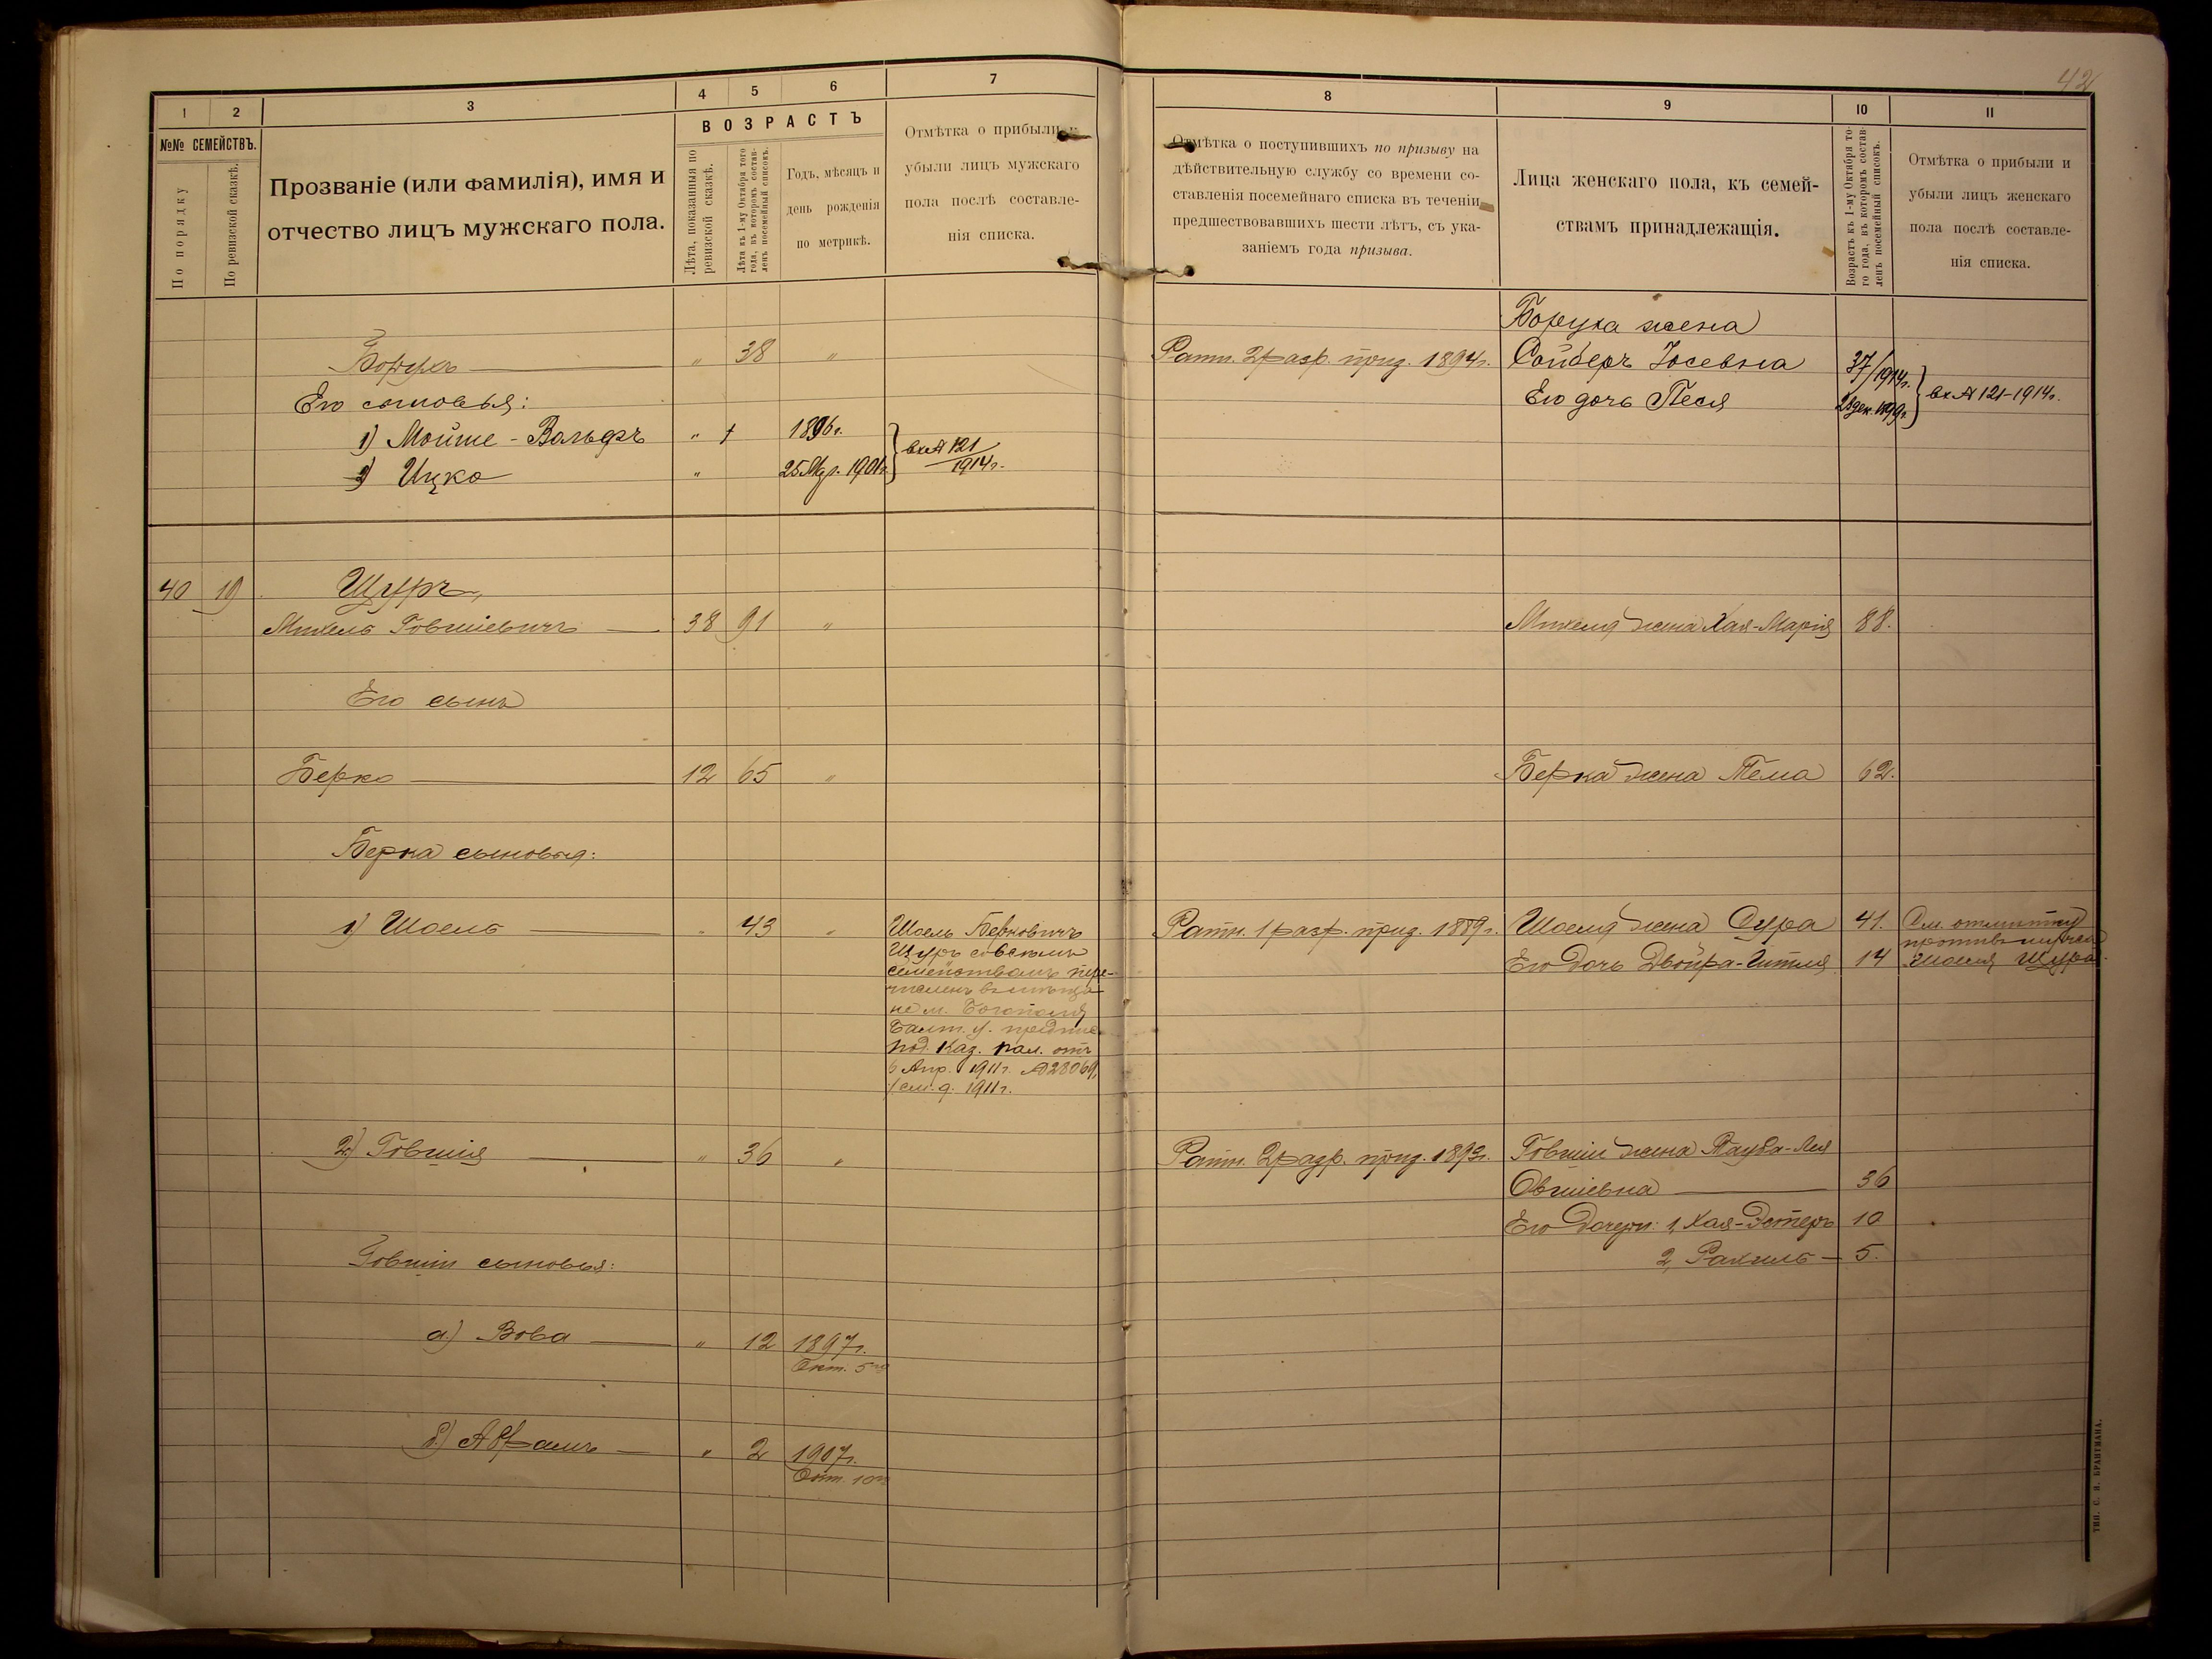 42
1
2
3
4
5
6
7
№№ СЕМЕЙСТВЪ.
По порядку
По ревизской сказкѣ.
Прозваніе (или фамилія), имя и
отчество лицъ мужскаго пола.
ВОЗРАСТЪ
Лѣта, показанныя по
ревизской сказкѣ.
Лѣта къ 1-му Октября того
года, въ которомъ состав-
ленъ посемейный списокъ.
Годъ, мѣсяцъ и
день рожденія
по метрикѣ.
Отмѣтка о прибыли и
убыли лицъ мужскаго
пола послѣ составле-
нія списка.
Борухъ — " 38 "
Его сыновья:
1) Мойше-Вольфъ " † 1896г.
2) Ицко " 25 1901г.
вх № 121
1914г.
40 19 Щуръ,
Михель Говшіевичъ — 38 91 "
Его сынъ
Берко — 12 65 "
Берка сыновья:
1) Шоель — " 43 "
Шоель Берковичъ
Щуръ со всѣмъ
семействомъ пере-
численъ въ мѣща-
не м. Богополя
Балт. у. предпис.
Под. Каз. пал. отъ
6 Апр. 1911г. №28069,
см. д. 1911г.
2) Говшія — " 36 "
Говшіи сыновья:
а) Вова — " 12 1897г.
Окт. 5го
б) Абрамъ — " 2 1907г.
Окт. 10го
8
9
10
11
Отмѣтка о поступившихъ по призыву на
дѣйствительную службу со времени со-
ставленія посемейнаго списка въ теченіи
предшествовавшихъ шести лѣтъ, съ ука-
заніемъ года призыва.
Лица женскаго пола, къ семей-
ствамъ принадлежащія.
Возрастъ къ 1-му Октября то-
го года, въ которомъ состав-
ленъ посемейный списокъ.
Отмѣтка о прибыли и
убыли лицъ женскаго
пола послѣ составле-
нія списка.
Боруха жена
Ратн. 2 разр. приз. 1894г. Сойберъ Іосевна 37/1914г.
Его дочь Песя 28 дек. 1899г.
вх № 121-1914г.
Михеля жена Хая-Марія 88.
Берка жена Тема 62.
Ратн. 1 разр. приз. 1889г. Шоеля жена Сура 41. См. отмѣтку
противъ
Его дочь Двойра-Гитля 14 Шоеля Щура.
Ратн. 2 разр. приз. 1893г. Говшіи жена Тауба-Лея
Овшіевна — 36
Его дочери: 1, Хая-Эстеръ 10
2, Рахиль — 5.
ТИП. С. Я. БРАНТМАНА.